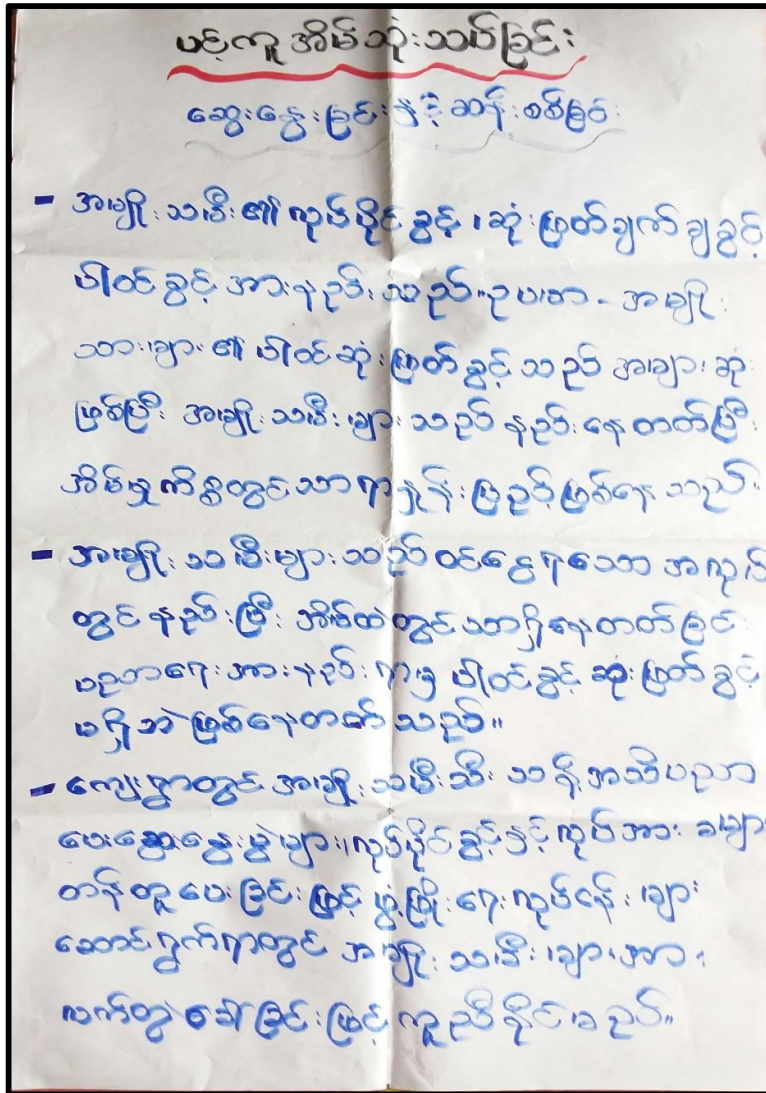 ပင့်ကူအိမ်သုံးသပ်ခြင်း
ဆွေးနွေးခြင်းနှင့်ဆန်းစစ်ခြင်း
- အမျိုးသမီး၏လုပ်ပိုင်ခွင့်၊ဆုံးဖြတ်ချက်ချခွင့်
ပါဝင်ခွင့်အားနည်းသည်။ဥပမာ - အမျိုး
သားများ၏ပါဝင်ဆုံးဖြတ်ခွင့်သည်အများဆုံး
ဖြစ်ပြီးအမျိုးသမီးများသည်နည်းနေတတ်ပြီး
အိမ်မှုကိစ္စတွင်သာရာနှုန်းပြည့်ဖြစ်နေသည်။
- အမျိုးသမီးများသည်ဝင်ငွေရသောအလုပ်
တွင်နည်းပြီးအိမ်ထဲတွင်သာရှိနေတတ်ခြင်း
ပညာရေးအားနည်းရာမှပါဝင်ခွင့်ဆုံးဖြတ်ခွင့်
မရှိဘဲဖြစ်နေတတ်သည်။
- ကျေးရွာတွင်အမျိုးသမီးသီးသန့်အသိပညာ
ပေးဆွေးနွေးပွဲများ၊လုပ်ပိုင်ခွင့်နှင့်လုပ်အားခများ
တန်တူပေးခြင်းဖြင့်ဖွံ့ဖြိုးရေးလုပ်ငန်းများ
ဆောင်ရွက်ရာတွင်အမျိုးသမီးများအား
လက်တွဲခေါ်ခြင်းဖြင့်ကူညီနိုင်မည်။